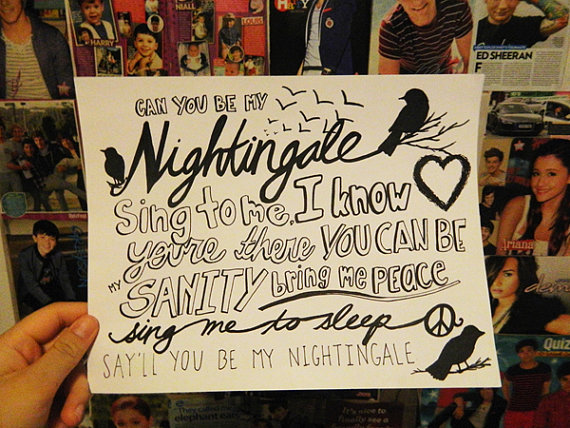 HARRY
NIALL
ED SHEERAN
CAN YOU BE MY
Nightingale
Sing to me, I know
you're there YOU CAN BE
MY SANITY bring me PEACE
sing me to sleep
SAY'LL YOU BE MY NIGHTINGALE
Ariana
demi
Quiz
They called me
elephant ears
It's nice to
finally see a